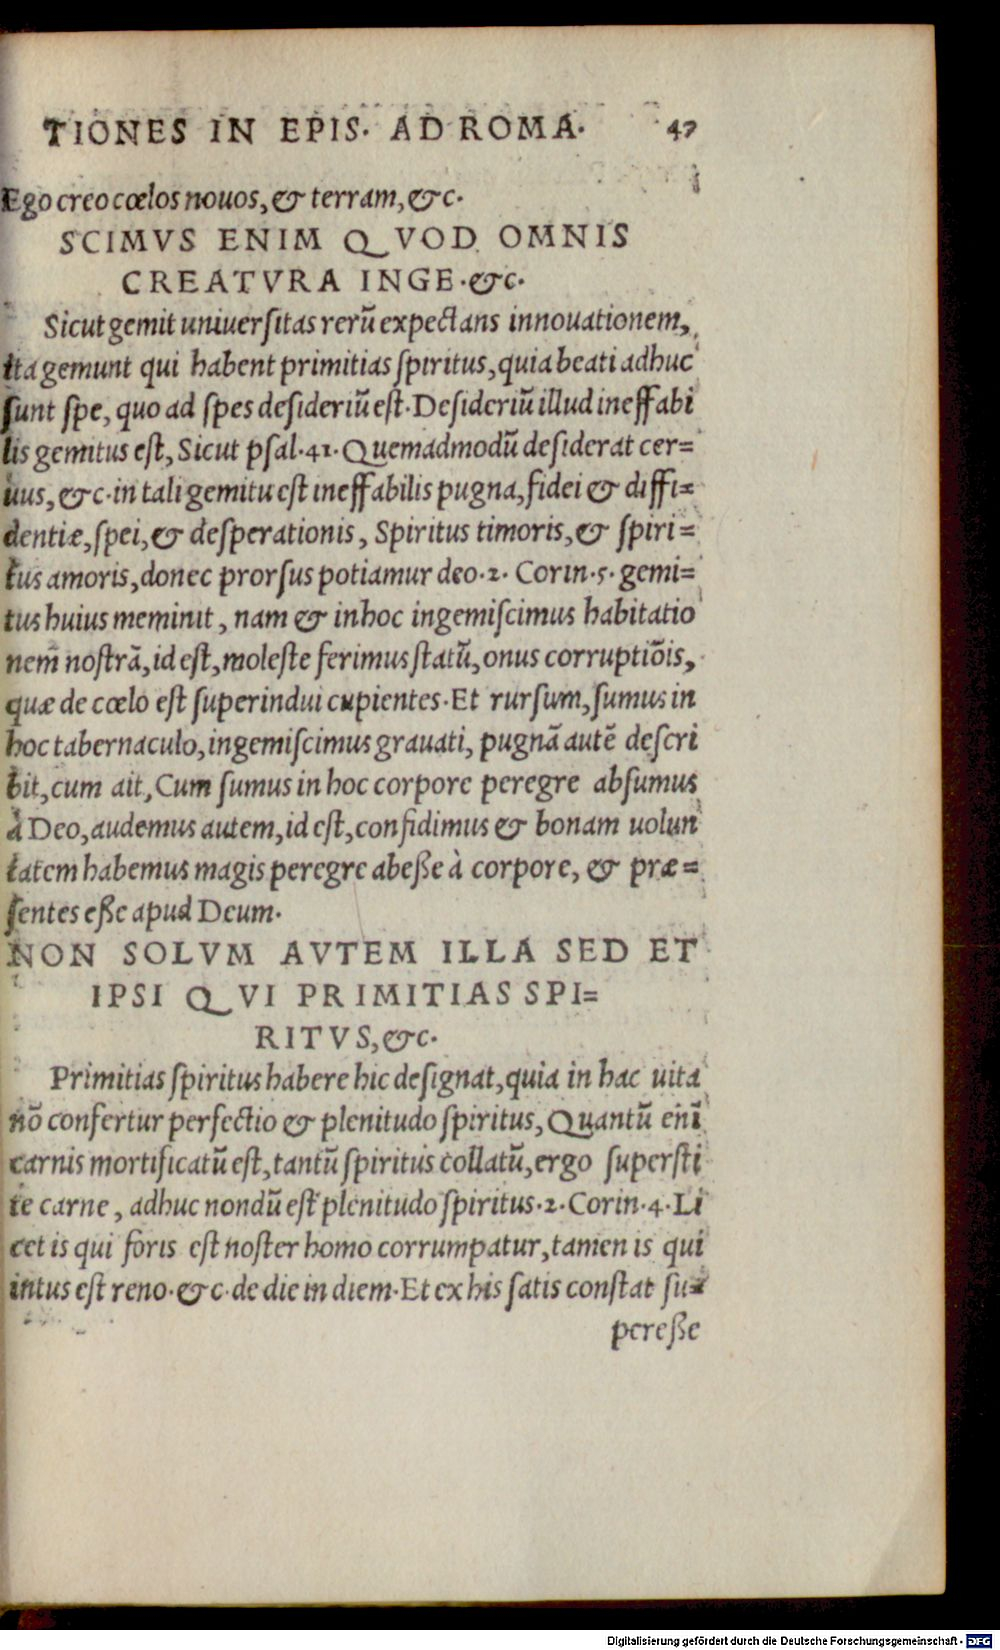 TIONES IN EPIS. AD ROMA. 47
Ego creo cœlos nouos, & terram, &c.
SCIMVS ENIM QVOD OMNIS
CREATVRA INGE. &c.
Sicut gemit uniuersitas rerū expectans innouationem,
ita gemunt qui habent primitias spiritus, quia beati adhuc
sunt spe, quo ad spes desideriū est. Desideriū illud ineffabi
lis gemitus est, Sicut psal. 41. Quemadmodū desiderat cer=
uus, &c. in tali gemitu est ineffabilis pugna, fidei & diffi=
dentiæ, spei, & desperationis, Spiritus timoris, & spiri=
tus amoris, donec prorsus potiamur deo. 2. Corin. 5. gemi=
tus huius meminit, nam & in hoc ingemiscimus habitatio
nem̄ nostrā, id est, moleste ferimus statū, onus corruptiōis,
quæ de cœlo est superindui cupientes. Et rursum, sumus in
hoc tabernaculo, ingemiscimus grauati, pugnā autē descri
bit, cum ait, Cum sumus in hoc corpore peregre absumus
à Deo, audemus autem, id est, confidimus & bonam uolun
tatem habemus magis peregre abeſſe à corpore, & præ=
sentes eſſe apud Deum.
NON SOLVM AVTEM ILLA SED ET
IPSI QVI PRIMITIAS SPI=
RITVS, &c.
Primitias spiritus habere hic designat, quia in hac uita
nō confertur perfectio & plenitudo spiritus, Quantū enī
carnis mortificatū est, tantū spiritus collatū, ergo supersti
te carne, adhuc nondū est plenitudo spiritus. 2. Corin. 4. Li
cet is qui foris est noster homo corrumpatur, tamen is qui
intus est reno. &c. de die in diem. Et ex his satis constat su=
pereſſe
Digitalisierung gefördert durch die Deutsche Forschungsgemeinschaft - DFG